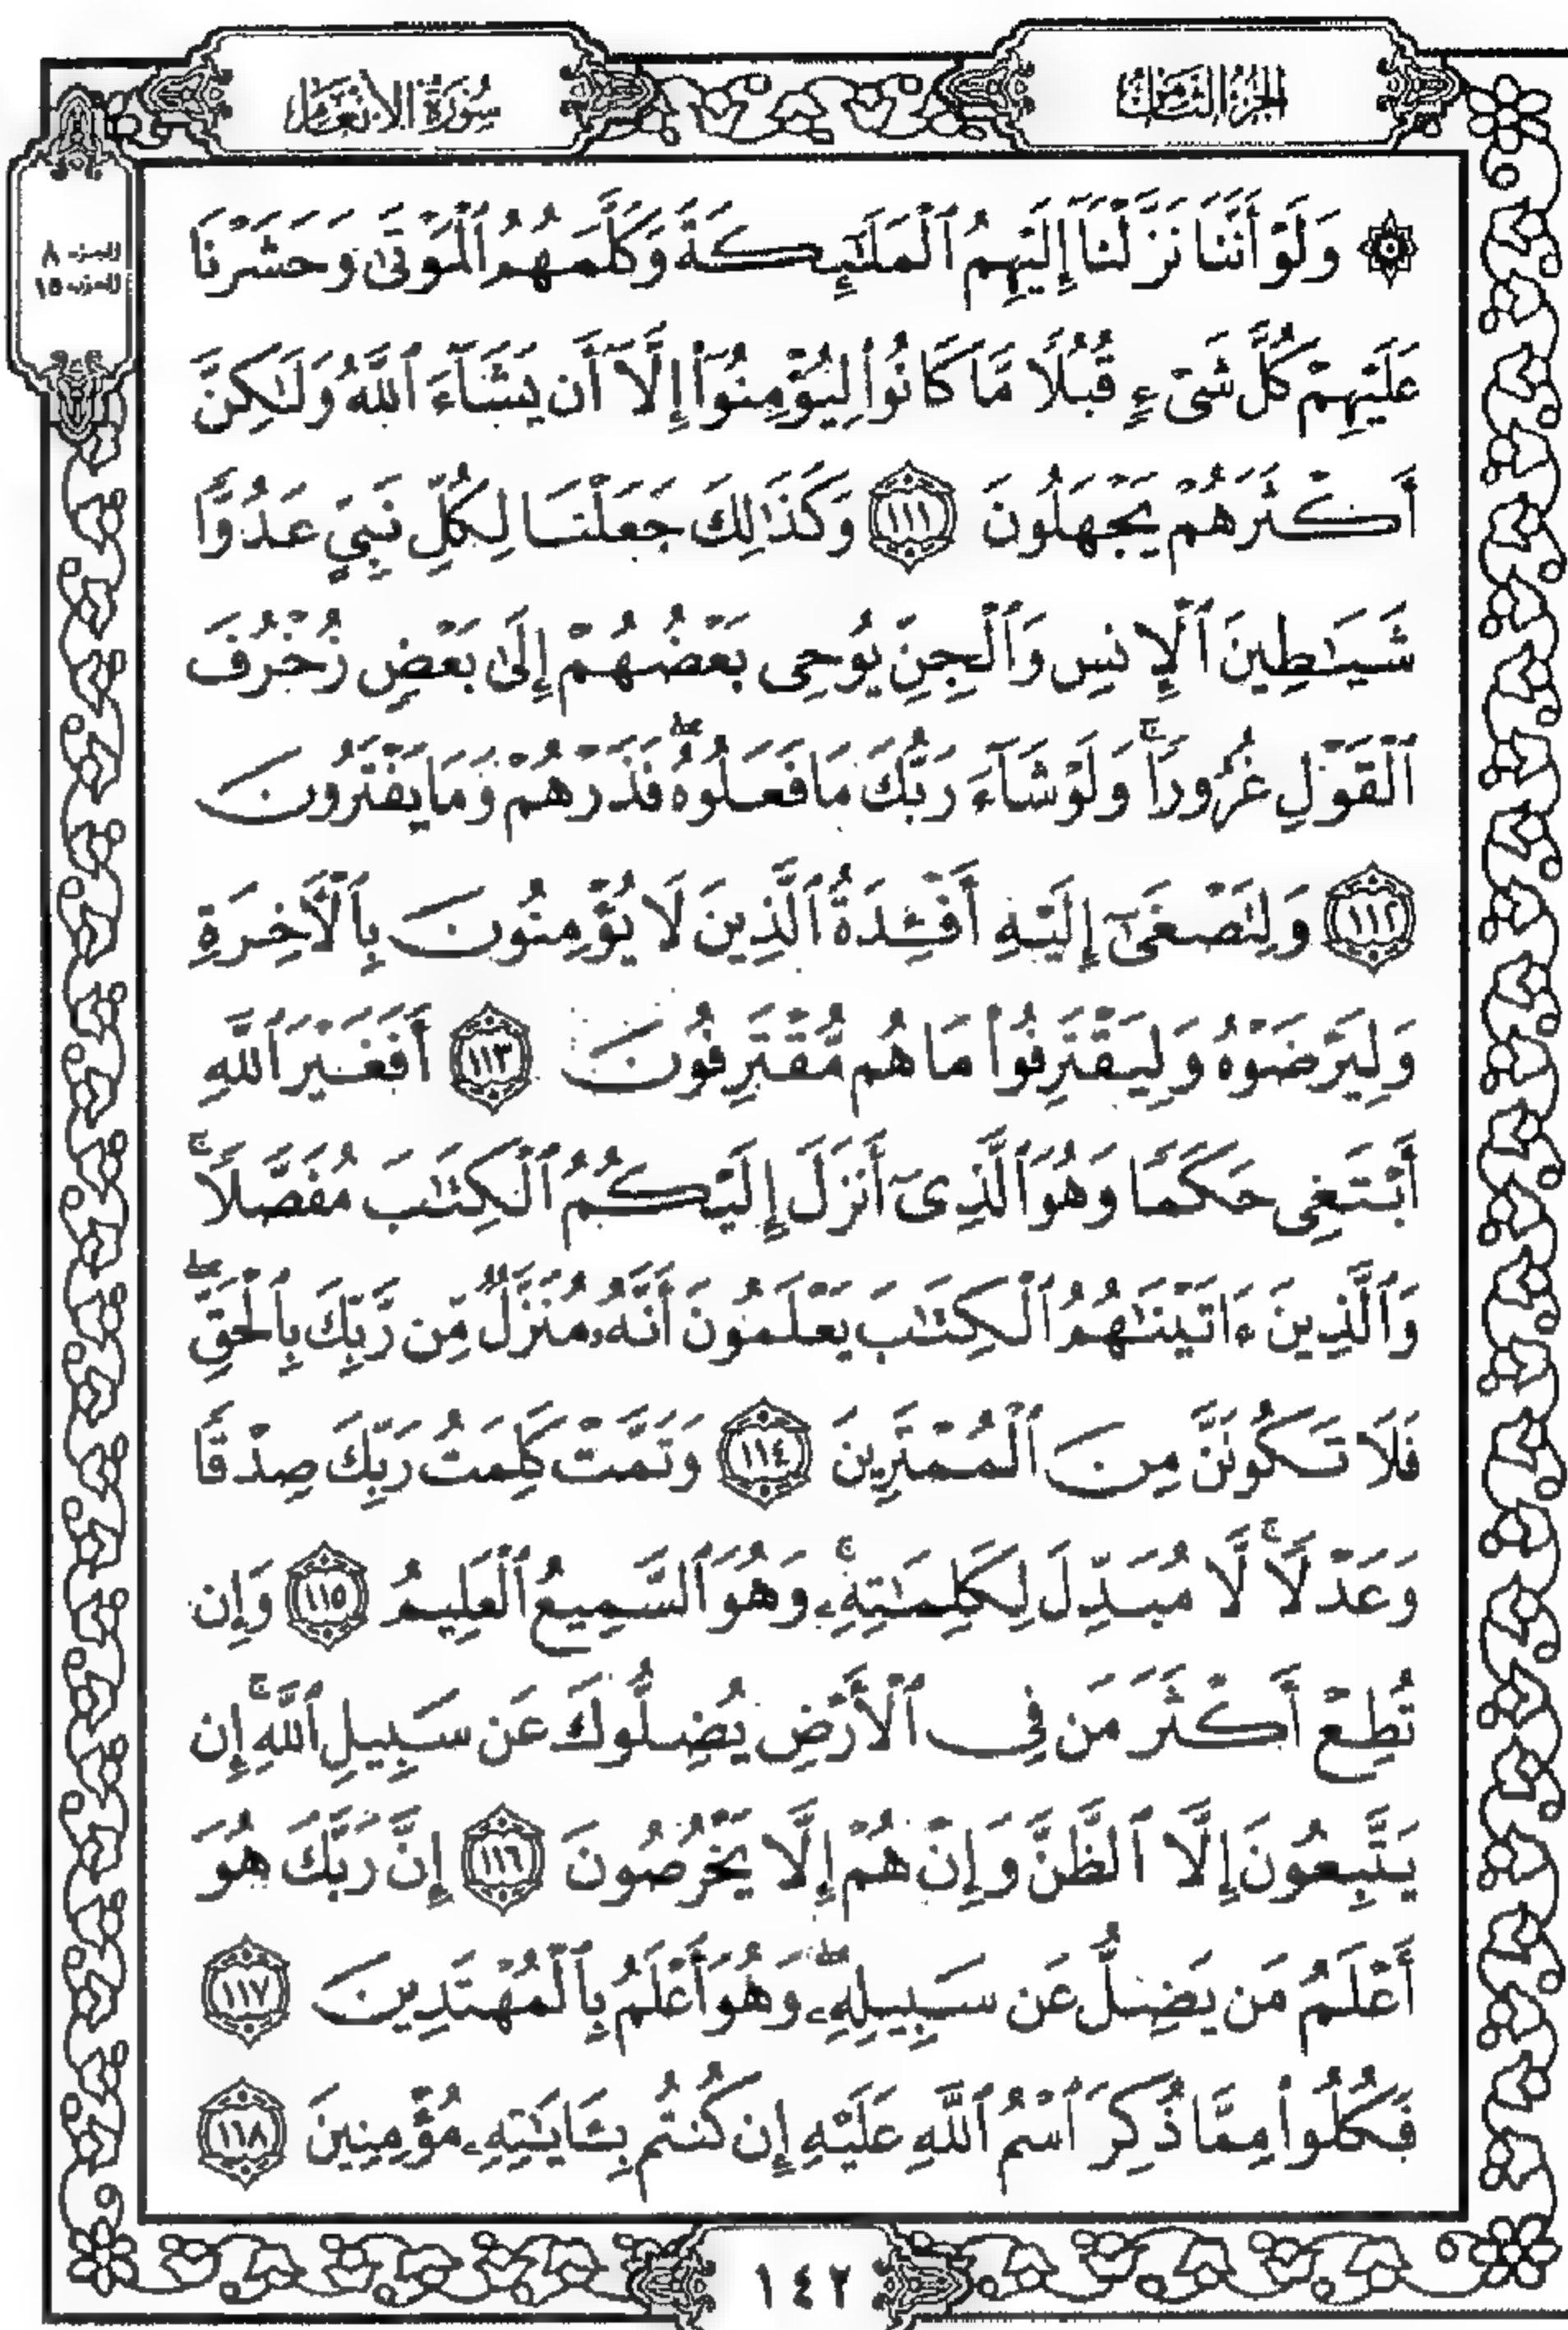 الجزء الثامن
سورة الأنعام
الجزء ٨
الحزب ١٥
۞ وَلَوْ أَنَّنَا نَزَّلْنَآ إِلَيْهِمُ ٱلْمَلَـٰٓئِكَةَ وَكَلَّمَهُمُ ٱلْمَوْتَىٰ وَحَشَرْنَا
عَلَيْهِمْ كُلَّ شَىْءٍ قُبُلًا مَّا كَانُوا۟ لِيُؤْمِنُوٓا۟ إِلَّآ أَن يَشَآءَ ٱللَّهُ وَلَـٰكِنَّ
أَكْثَرَهُمْ يَجْهَلُونَ ١١١ وَكَذَٰلِكَ جَعَلْنَا لِكُلِّ نَبِىٍّ عَدُوًّا
شَيَـٰطِينَ ٱلْإِنسِ وَٱلْجِنِّ يُوحِى بَعْضُهُمْ إِلَىٰ بَعْضٍ زُخْرُفَ
ٱلْقَوْلِ غُرُورًا ۚ وَلَوْ شَآءَ رَبُّكَ مَا فَعَلُوهُ ۖ فَذَرْهُمْ وَمَا يَفْتَرُونَ
١١٢ وَلِتَصْغَىٰٓ إِلَيْهِ أَفْـِٔدَةُ ٱلَّذِينَ لَا يُؤْمِنُونَ بِٱلْـَٔاخِرَةِ
وَلِيَرْضَوْهُ وَلِيَقْتَرِفُوا۟ مَا هُم مُّقْتَرِفُونَ ١١٣ أَفَغَيْرَ ٱللَّهِ
أَبْتَغِى حَكَمًا وَهُوَ ٱلَّذِىٓ أَنزَلَ إِلَيْكُمُ ٱلْكِتَـٰبَ مُفَصَّلًا ۚ
وَٱلَّذِينَ ءَاتَيْنَـٰهُمُ ٱلْكِتَـٰبَ يَعْلَمُونَ أَنَّهُۥ مُنَزَّلٌ مِّن رَّبِّكَ بِٱلْحَقِّ ۖ
فَلَا تَكُونَنَّ مِنَ ٱلْمُمْتَرِينَ ١١٤ وَتَمَّتْ كَلِمَتُ رَبِّكَ صِدْقًا
وَعَدْلًا ۚ لَّا مُبَدِّلَ لِكَلِمَـٰتِهِۦ ۚ وَهُوَ ٱلسَّمِيعُ ٱلْعَلِيمُ ١١٥ وَإِن
تُطِعْ أَكْثَرَ مَن فِى ٱلْأَرْضِ يُضِلُّوكَ عَن سَبِيلِ ٱللَّهِ ۚ إِن
يَتَّبِعُونَ إِلَّا ٱلظَّنَّ وَإِنْ هُمْ إِلَّا يَخْرُصُونَ ١١٦ إِنَّ رَبَّكَ هُوَ
أَعْلَمُ مَن يَضِلُّ عَن سَبِيلِهِۦ ۖ وَهُوَ أَعْلَمُ بِٱلْمُهْتَدِينَ ١١٧
فَكُلُوا۟ مِمَّا ذُكِرَ ٱسْمُ ٱللَّهِ عَلَيْهِ إِن كُنتُم بِـَٔايَـٰتِهِۦ مُؤْمِنِينَ ١١٨
١٤٢